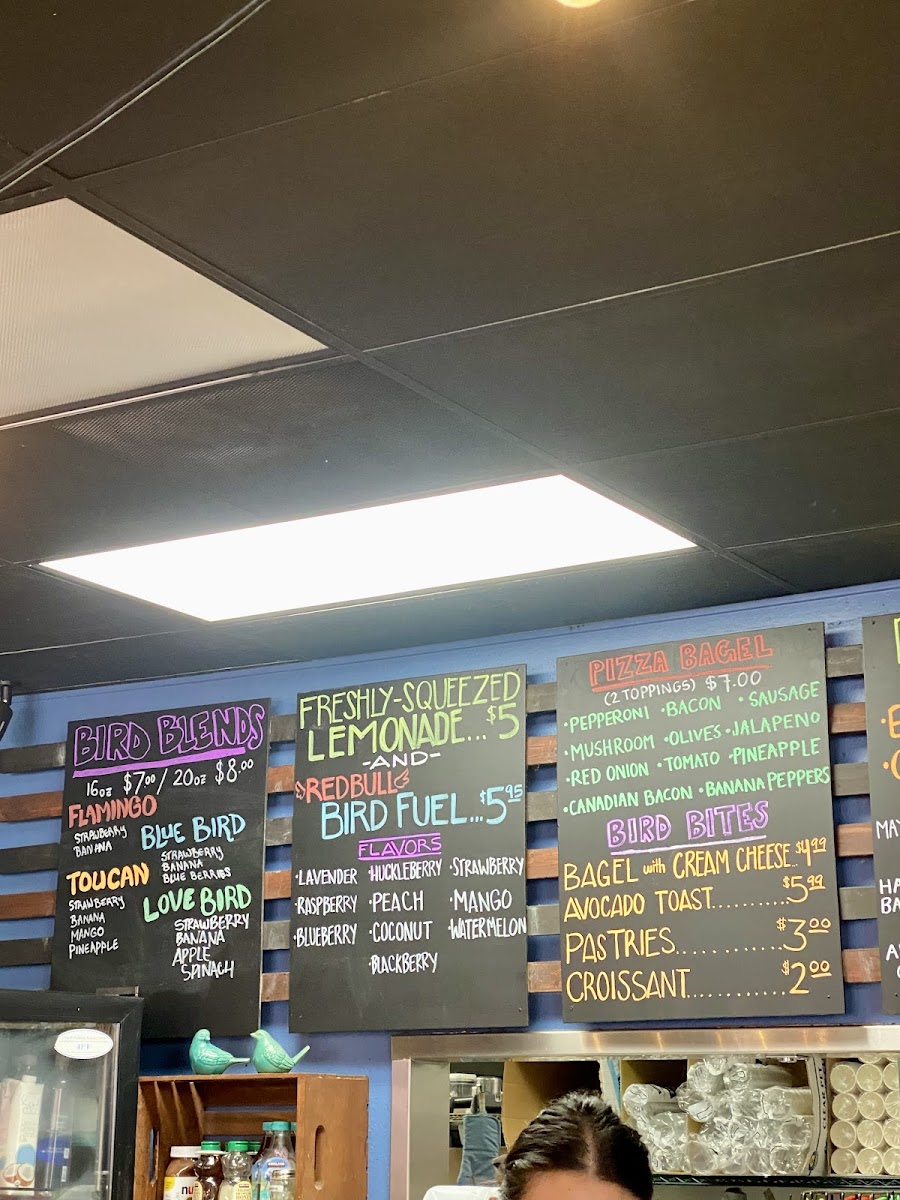 BIRD BLENDS
16oz $7.00 / 20oz $8.00
FLAMINGO
STRAWBERRY
BANANA
BLUE BIRD
STRAWBERRY
BANANA
BLUE BERRIES
TOUCAN
STRAWBERRY
BANANA
MANGO
PINEAPPLE
LOVE BIRD
STRAWBERRY
BANANA
APPLE
SPINACH
FRESHLY-SQUEEZED
LEMONADE...$5
-AND-
REDBULL
BIRD FUEL...$5.95
FLAVORS
·LAVENDER ·HUCKLEBERRY ·STRAWBERRY
·RASPBERRY ·PEACH ·MANGO
·BLUEBERRY ·COCONUT ·WATERMELON
·BLACKBERRY
PIZZA BAGEL
(2 TOPPINGS) $7.00
·PEPPERONI ·BACON ·SAUSAGE
·MUSHROOM ·OLIVES ·JALAPENO
·RED ONION ·TOMATO ·PINEAPPLE
·CANADIAN BACON ·BANANA PEPPERS
BIRD BITES
BAGEL with CREAM CHEESE..$4.99
AVOCADO TOAST..........$5.99
PASTRIES............$3.00
CROISSANT...........$2.00